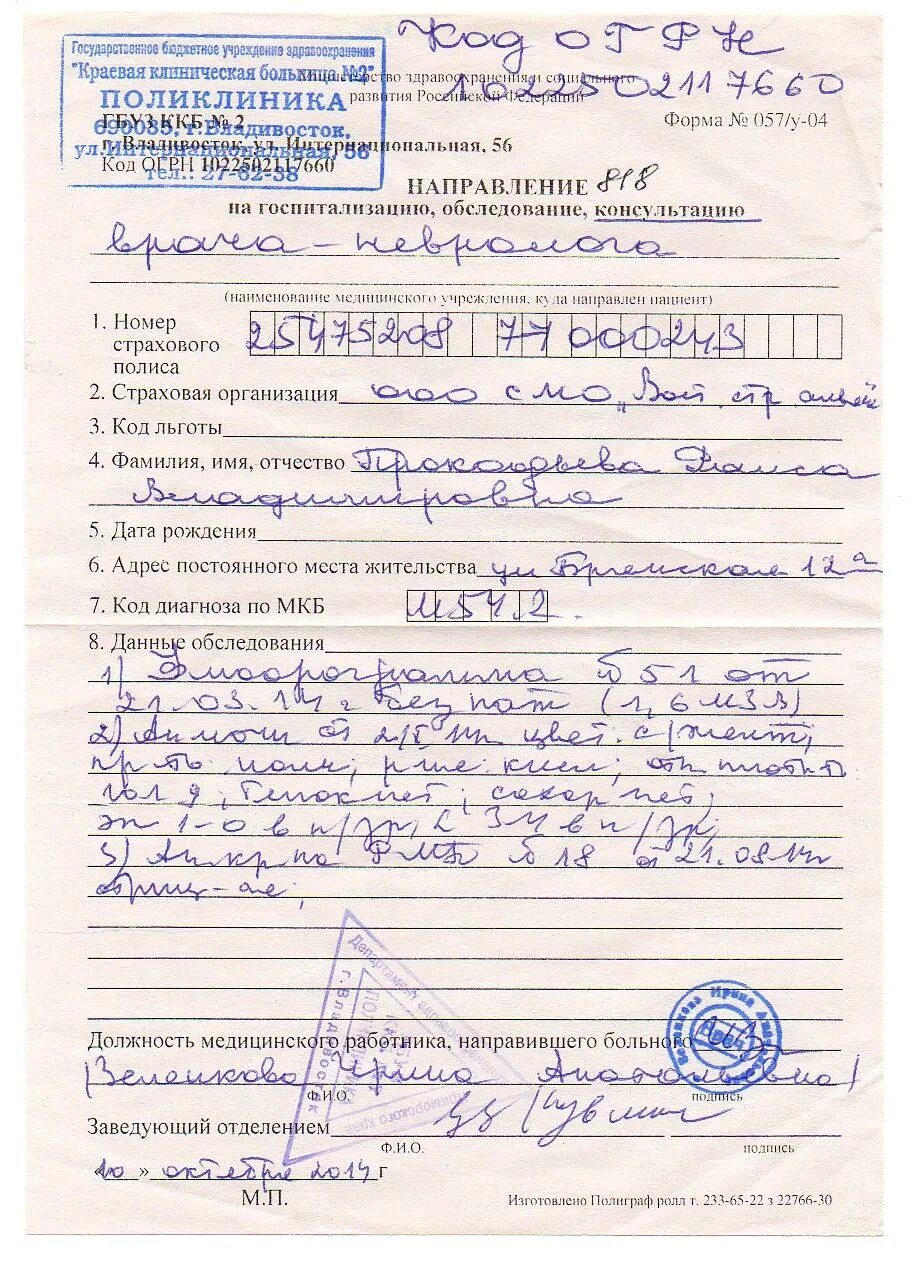 Код ОГРН
1022502117660
Государственное бюджетное учреждение здравоохранения
"Краевая клиническая больница №2"
ПОЛИКЛИНИКА
690035, г.Владивосток,
ул.Интернациональная, 56
тел.: 27-62-38
Министерство здравоохранения и социального
развития Российской Федерации
ГБУЗ ККБ № 2
г. Владивосток, ул. Интернациональная, 56
Код ОГРН 1022502117660
Форма № 057/у-04
НАПРАВЛЕНИЕ 818
на госпитализацию, обследование, консультацию
врача-невролога
(наименование медицинского учреждения, куда направлен пациент)
1. Номер
страхового
полиса
25475208 77000243
2. Страховая организация ООО СМО "Вост. стр.
3. Код льготы
4. Фамилия, имя, отчество Прокофьева Раиса
Владимировна
5. Дата рождения
6. Адрес постоянного места жительства ул 12а
7. Код диагноза по МКБ М54.2.
8. Данные обследования
1) Флюорограмма № 51 от
21.03.14г без пат (1,6 МЗВ)
2) Ан мочи от цвет с/желт;
пр-ть полн; р-ция кисл; отн плотн
сахар нет;
эп 1-0 в п/зр, L 3-4 в п/зр;
3) Ан кр на РМП № 18 от 21.08.14г
отриц-ае;
Департамент здравоохранения
Приморского края
г. Владивосток
Должность медицинского работника, направившего больного
Врач
(Зеленкова Ирина Анатольевна)
Ф.И.О.
подпись
Заведующий отделением
Ф.И.О.
подпись
«20» октября 2014 г
М.П.
Изготовлено Полиграф ролл т. 233-65-22 з 22766-30